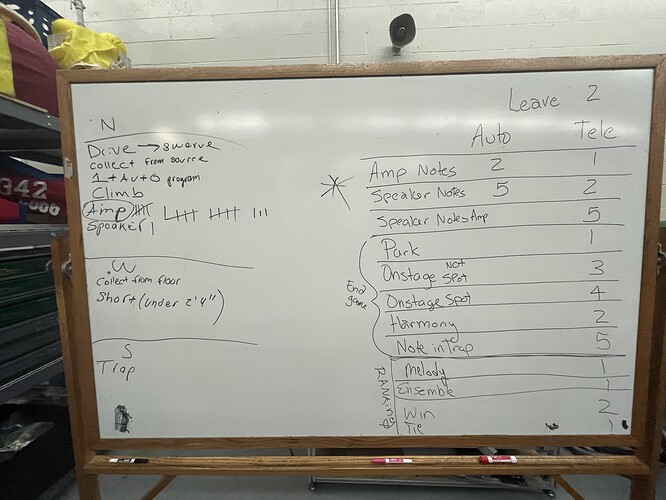 N
Drive → swerve
collect from source
1 + Auto program
Climb
Amp
Speaker
W
collect from floor
Short (under 2'4")
S
Trap
Leave 2
Auto Tele
Amp Notes 2 1
Speaker Notes 5 2
Speaker Notes Amp 5
Park 1
Onstage Not Spot 3
Onstage Spot 4
Harmony 2
Note in Trap 5
End game
Melody 1
Ensemble 1
Win 2
Tie 1
RANKING
342